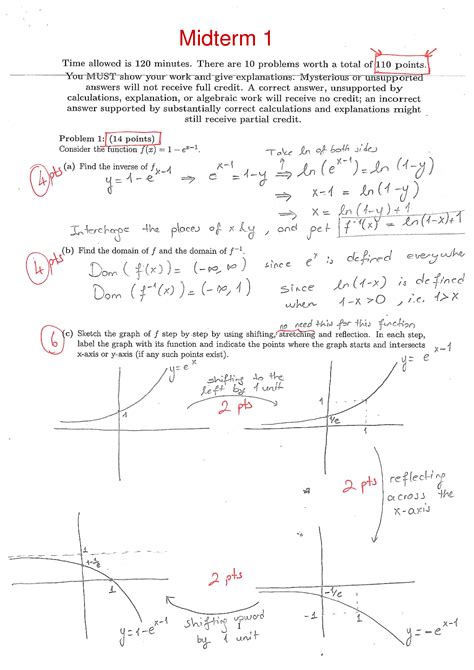 Midterm 1
Time allowed is 120 minutes. There are 10 problems worth a total of 110 points.
You MUST show your work and give explanations. Mysterious or unsupported
answers will not receive full credit. A correct answer, unsupported by
calculations, explanation, or algebraic work will receive no credit; an incorrect
answer supported by substantially correct calculations and explanations might
still receive partial credit.
Problem 1: (14 points)
Consider the function f(x) = 1 − e^{x−1}.
Take ln of both sides
4 pts
(a) Find the inverse of f.
y = 1 - e^{x-1} ⇒ e^{x-1} = 1-y ⇒ ln(e^{x-1}) = ln(1-y)
⇒ x-1 = ln(1-y)
⇒ x = ln(1-y)+1
Interchange the places of x & y, and get f^{-1}(x) = ln(1-x)+1
4 pts
(b) Find the domain of f and the domain of f^{-1}.
Dom (f(x)) = (-∞, ∞) since e^x is defined everywhere
Dom (f^{-1}(x)) = (-∞, 1) since ln(1-x) is defined
when 1-x>0, i.e. 1>x
no need this for this function
6
(c) Sketch the graph of f step by step by using shifting, stretching and reflection. In each step,
label the graph with its function and indicate the points where the graph starts and intersects
x-axis or y-axis (if any such points exist).
y = e^x
shifting to the
left by 1 unit
2 pts
y = e^{x-1}
1
1
1/e
1
2 pts
reflecting
across the
x-axis
1
1-1/e
1
y = 1-e^{x-1}
2 pts
shifting upword
by 1 unit
-1/e
1
-1
y = -e^{x-1}